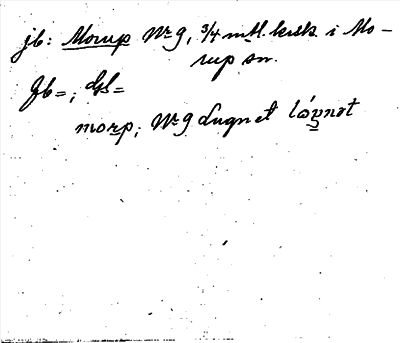 jb: Morup Nr 9, 3/4 mtl. krsk. i Mo-
rup sn.
Jb=; Gsl=
morp; Nr 9 Lugnet lóŋnət